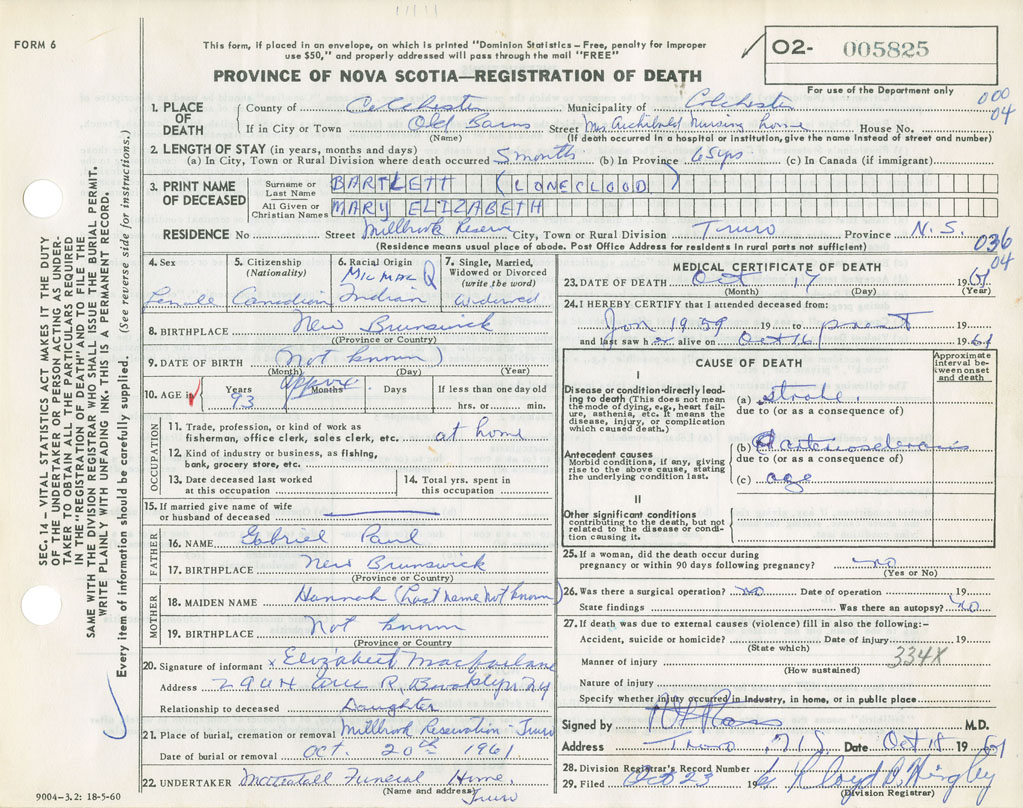 FORM 6
This form, if placed in an envelope, on which is printed "Dominion Statistics – Free, penalty for improper
use $50," and properly addressed will pass through the mail "FREE"
02- 005825
For use of the Department only
PROVINCE OF NOVA SCOTIA—REGISTRATION OF DEATH
000
04
SEC. 14 – VITAL STATISTICS ACT MAKES IT THE DUTY
OF THE UNDERTAKER OR PERSON ACTING AS UNDER-
TAKER TO OBTAIN ALL THE PARTICULARS REQUIRED
IN THE "REGISTRATION OF DEATH" AND TO FILE THE
SAME WITH THE DIVISION REGISTRAR WHO SHALL ISSUE THE BURIAL PERMIT.
WRITE PLAINLY WITH UNFADING INK. THIS IS A PERMANENT RECORD.
Every item of information should be carefully supplied. (See reverse side for instructions.)
1. PLACE OF DEATH
County of Colchester Municipality of Colchester
If in City or Town Old Barns Street Mrs Archibald Nursing Home House No.
(Name) (If death occurred in a hospital or institution, give the name instead of street and number)
2. LENGTH OF STAY (in years, months and days)
(a) In City, Town or Rural Division where death occurred 5 months (b) In Province 65 yrs (c) In Canada (if immigrant)
3. PRINT NAME OF DECEASED
Surname or Last Name BARTLETT (LONECLOOD)
All Given or Christian Names MARY ELIZABETH
RESIDENCE No Street Millbrook Reserve City, Town or Rural Division Truro Province N.S.
(Residence means usual place of abode. Post Office Address for residents in rural parts not sufficient)
036
04
4. Sex Female
5. Citizenship (Nationality) Canadian
6. Racial Origin MicMac Indian
7. Single, Married, Widowed or Divorced (write the word) Widowed
8. BIRTHPLACE New Brunswick
(Province or Country)
9. DATE OF BIRTH (Not known)
(Month) (Day) (Year)
10. AGE in Years 93 Months approx. Days If less than one day old
hrs. or min.
OCCUPATION
11. Trade, profession, or kind of work as
fisherman, office clerk, sales clerk, etc. at home
12. Kind of industry or business, as fishing,
bank, grocery store, etc.
13. Date deceased last worked
at this occupation
14. Total yrs. spent in
this occupation
15. If married give name of wife
or husband of deceased
FATHER
16. NAME Gabriel Paul
17. BIRTHPLACE New Brunswick
(Province or Country)
MOTHER
18. MAIDEN NAME Hannah (Last name not known)
19. BIRTHPLACE Not known
(Province or Country)
20. Signature of informant x Elizabeth Macfarlane
Address 2904 Ave R, Brooklyn NY
Relationship to deceased Daughter
21. Place of burial, cremation or removal Millbrook Reservation - Truro
Date of burial or removal Oct. 20th 1961
22. UNDERTAKER Mattatall Funeral Home,
(Name and address) Truro
9004-3.2: 18-5-60
MEDICAL CERTIFICATE OF DEATH
23. DATE OF DEATH Oct 17 1961
(Month) (Day) (Year)
24. I HEREBY CERTIFY that I attended deceased from:
Jan 1959 19 to present 19
and last saw her alive on Oct 16 1961
CAUSE OF DEATH
Approximate interval between onset and death
I
Disease or condition directly lead-
ing to death (This does not mean
the mode of dying, e.g., heart fail-
ure, asthenia, etc. It means the
disease, injury, or complication
which caused death.)
(a) stroke.
due to (or as a consequence of)
Antecedent causes
Morbid conditions, if any, giving
rise to the above cause, stating
the underlying condition last.
(b) Arteriosclerosis
due to (or as a consequence of)
(c) age
II
Other significant conditions
contributing to the death, but not
related to the disease or condi-
tion causing it.
25. If a woman, did the death occur during
pregnancy or within 90 days following pregnancy? no
(Yes or No)
26. Was there a surgical operation? no Date of operation 19
State findings Was there an autopsy? no
27. If death was due to external causes (violence) fill in also the following:-
Accident, suicide or homicide? Date of injury 19
(State which)
334X
Manner of injury
(How sustained)
Nature of injury
Specify whether injury occurred in industry, in home, or in public place
Signed by Ross M.D.
Address Truro N.S. Date Oct 18 1961
28. Division Registrar's Record Number
29. Filed Oct 23
(Division Registrar)